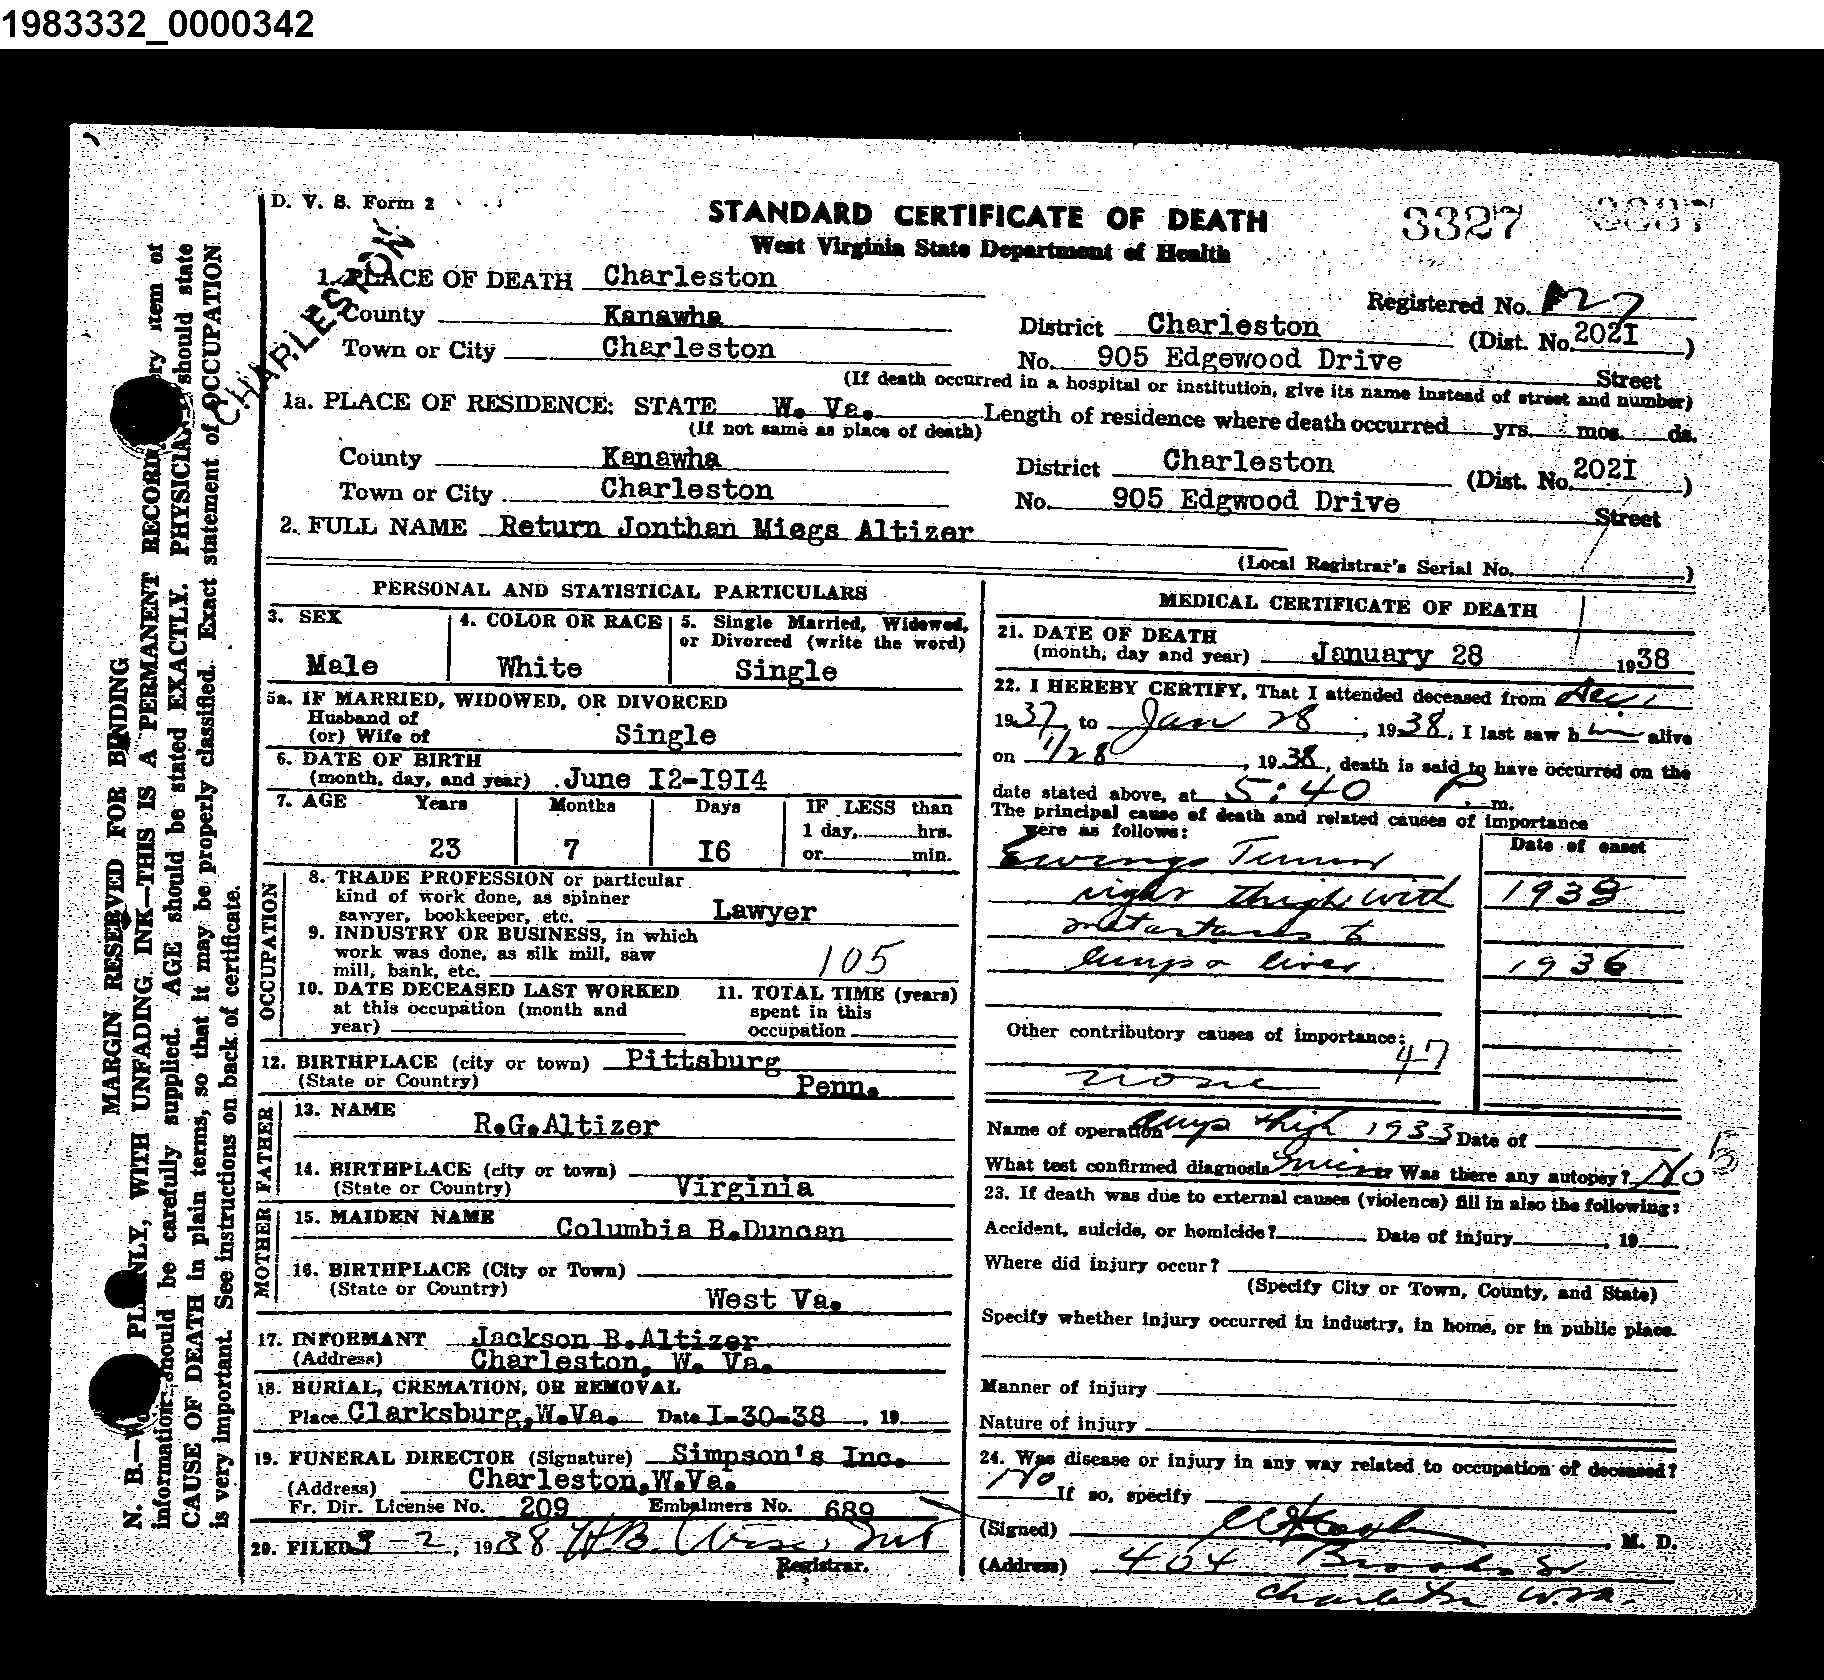 1983332_0000342
D. V. S. Form 2
STANDARD CERTIFICATE OF DEATH
3327
West Virginia State Department of Health
CHARLESTON
1. PLACE OF DEATH Charleston
Registered No. 27
County Kanawha
District Charleston (Dist. No. 202I )
Town or City Charleston
No. 905 Edgewood Drive Street
(If death occurred in a hospital or institution, give its name instead of street and number)
1a. PLACE OF RESIDENCE: STATE W. Va. Length of residence where death occurred yrs. mos. ds.
(If not same as place of death)
County Kanawha
District Charleston (Dist. No. 202I )
Town or City Charleston
No. 905 Edgwood Drive Street
2. FULL NAME Return Jonthan Miegs Altizer
(Local Registrar's Serial No. )
PERSONAL AND STATISTICAL PARTICULARS
3. SEX
Male
4. COLOR OR RACE
White
5. Single Married, Widowed,
or Divorced (write the word)
Single
5a. IF MARRIED, WIDOWED, OR DIVORCED
Husband of
(or) Wife of Single
6. DATE OF BIRTH
(month, day, and year) June I2-I9I4
7. AGE Years Months Days IF LESS than
1 day, hrs.
23 7 I6 or min.
OCCUPATION
8. TRADE PROFESSION or particular
kind of work done, as spinner
sawyer, bookkeeper, etc. Lawyer
9. INDUSTRY OR BUSINESS, in which
work was done, as silk mill, saw
mill, bank, etc. 105
10. DATE DECEASED LAST WORKED
at this occupation (month and
year)
11. TOTAL TIME (years)
spent in this
occupation
12. BIRTHPLACE (city or town) Pittsburg
(State or Country) Penn.
FATHER
13. NAME R.G.Altizer
14. BIRTHPLACE (city or town)
(State or Country) Virginia
MOTHER
15. MAIDEN NAME Columbia B.Duncan
16. BIRTHPLACE (City or Town)
(State or Country) West Va.
17. INFORMANT Jackson B.Altizer
(Address) Charleston, W. Va.
18. BURIAL, CREMATION, OR REMOVAL
Place Clarksburg,W.Va. Date I-30-38 , 19
19. FUNERAL DIRECTOR (Signature) Simpson's Inc.
(Address) Charleston,W.Va.
Fr. Dir. License No. 209 Embalmers No. 689
20. FILED 3-2, 1938 H.B.
Registrar.
MEDICAL CERTIFICATE OF DEATH
21. DATE OF DEATH
(month, day and year) January 28 1938
22. I HEREBY CERTIFY, That I attended deceased from
1937, to Jan 28, 1938, I last saw him alive
on 1/28, 1938, death is said to have occurred on the
date stated above, at 5:40 P. m.
The principal cause of death and related causes of importance
were as follows:
Date of onset
Ewings Tumor
right thigh with 1933
metastases to
lungs & liver 1936
Other contributory causes of importance:
47
none
Name of operation Amp thigh 1933 Date of
What test confirmed diagnosis Was there any autopsy? No
23. If death was due to external causes (violence) fill in also the following:
Accident, suicide, or homicide? Date of injury , 19
Where did injury occur?
(Specify City or Town, County, and State)
Specify whether injury occurred in industry, in home, or in public place.
Manner of injury
Nature of injury
24. Was disease or injury in any way related to occupation of deceased?
No If so, specify
(Signed) , M. D.
(Address) 404 Brooks St
Charleston W.Va.
MARGIN RESERVED FOR BINDING
N. B.—WRITE PLAINLY, WITH UNFADING INK—THIS IS A PERMANENT RECORD. Every item of
information should be carefully supplied. AGE should be stated EXACTLY. PHYSICIANS should state
CAUSE OF DEATH in plain terms, so that it may be properly classified. Exact statement of OCCUPATION
is very important. See instructions on back of certificate.